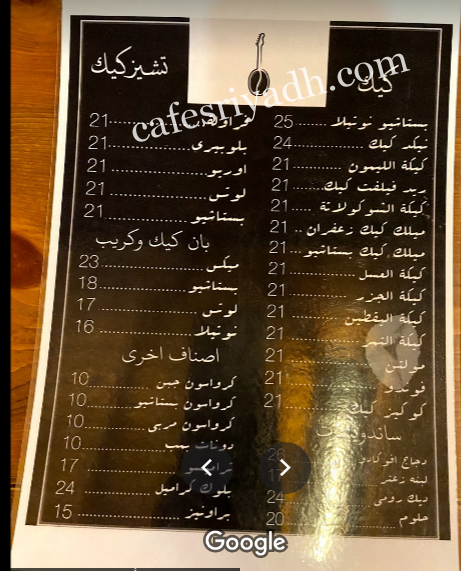 كيك
بستاشيو نوتيلا ...... 25
نيكد كيك ...... 24
كيكة الليمون ...... 21
ريد فيلفت كيك ...... 21
كيكة الشوكولاتة ...... 21
ميلك كيك زعفران .. 21
ميلك كيك بستاشيو .. 21
كيكة العسل ...... 21
كيكة الجزر ...... 21
كيكة اليقطين ...... 21
كيكة التمر ...... 21
مولتن ...... 21
فوندو ...... 21
كوكيز كيك ...... 21
ساندويتش
دجاج افوكادو
لبنة زعتر
ديك رومي ...... 24
حلوم ...... 20
تشيزكيك
فراولة ...... 21
بلوبيري ...... 21
اوريو ...... 21
لوتس ...... 21
بستاشيو ...... 21
بان كيك وكريب
ميكس ...... 23
بستاشيو ...... 18
لوتس ...... 17
نوتيلا ...... 16
اصناف اخرى
كرواسون جبن ...... 10
كرواسون بستاشيو ...... 10
كرواسون مربى ...... 10
دونات ...... 10
...... 17
بلوك كراميل ...... 24
براونيز ...... 15
cafesriyadh.com
Google